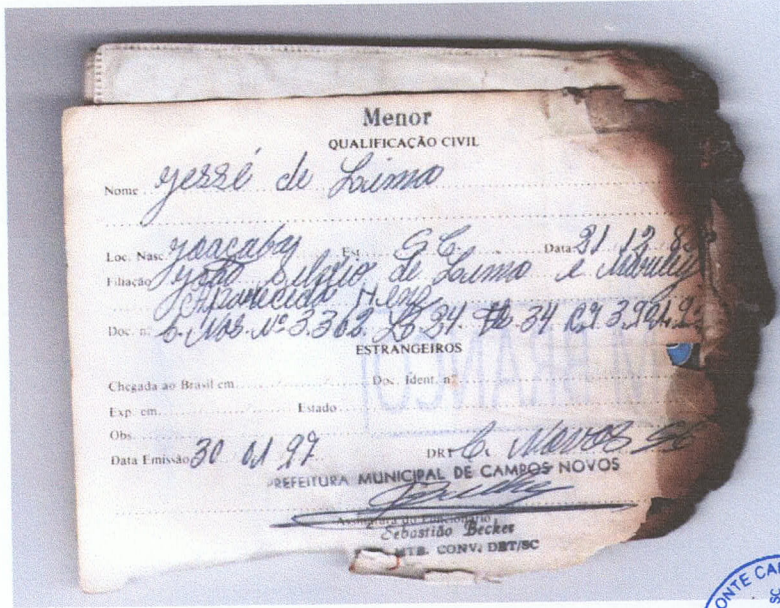 Menor
QUALIFICAÇÃO CIVIL
Nome Jessé de Lima
Loc. Nasc. Joaçaba Est. SC. Data 31 12 8
Filiação João de Lima e
Aparecida
Doc. n. Nº 3.362 34
ESTRANGEIROS
Chegada ao Brasil em Doc. Ident. nº
Exp. em Estado
Obs.
Data Emissão 30 01 97 DRT C. Novos SC
PREFEITURA MUNICIPAL DE CAMPOS NOVOS
Assinatura do Funcionário
Sebastião Becker
MTB. CONV. DRT/SC
EM BRANCO
ONTE CA